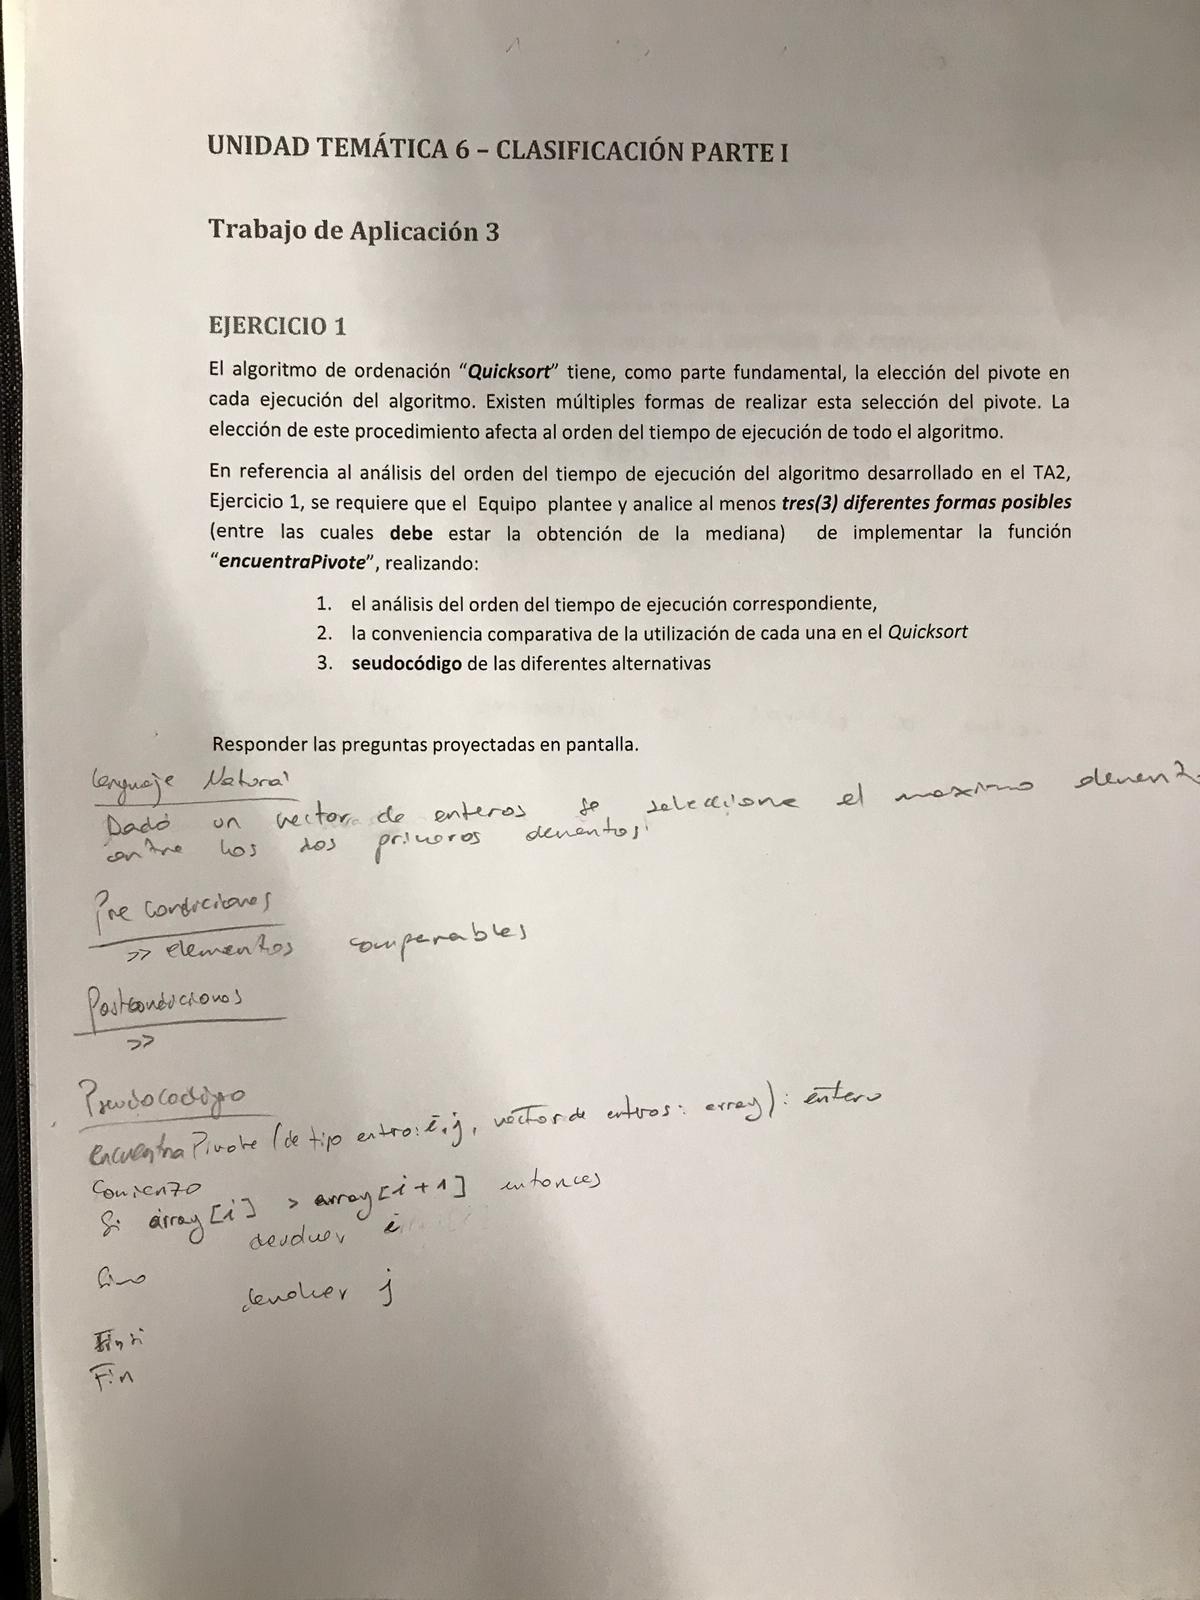 UNIDAD TEMÁTICA 6 – CLASIFICACIÓN PARTE I
Trabajo de Aplicación 3
EJERCICIO 1
El algoritmo de ordenación “Quicksort” tiene, como parte fundamental, la elección del pivote en
cada ejecución del algoritmo. Existen múltiples formas de realizar esta selección del pivote. La
elección de este procedimiento afecta al orden del tiempo de ejecución de todo el algoritmo.
En referencia al análisis del orden del tiempo de ejecución del algoritmo desarrollado en el TA2,
Ejercicio 1, se requiere que el Equipo plantee y analice al menos tres(3) diferentes formas posibles
(entre las cuales debe estar la obtención de la mediana) de implementar la función
“encuentraPivote”, realizando:
1. el análisis del orden del tiempo de ejecución correspondiente,
2. la conveniencia comparativa de la utilización de cada una en el Quicksort
3. seudocódigo de las diferentes alternativas
Responder las preguntas proyectadas en pantalla.
Lenguaje Natural
Dado un vector de enteros se seleccione el maximo
entre los dos primeros elementos
Pre condiciones
>> elementos comparables
Postcondiciones
>>
Pseudocodigo
encuentraPivote (de tipo entero: i, j, vector de enteros: array): entero
Comienzo
Si array[i] > array[i+1] entonces
devolver i
Sino
devolver j
Fin si
Fin